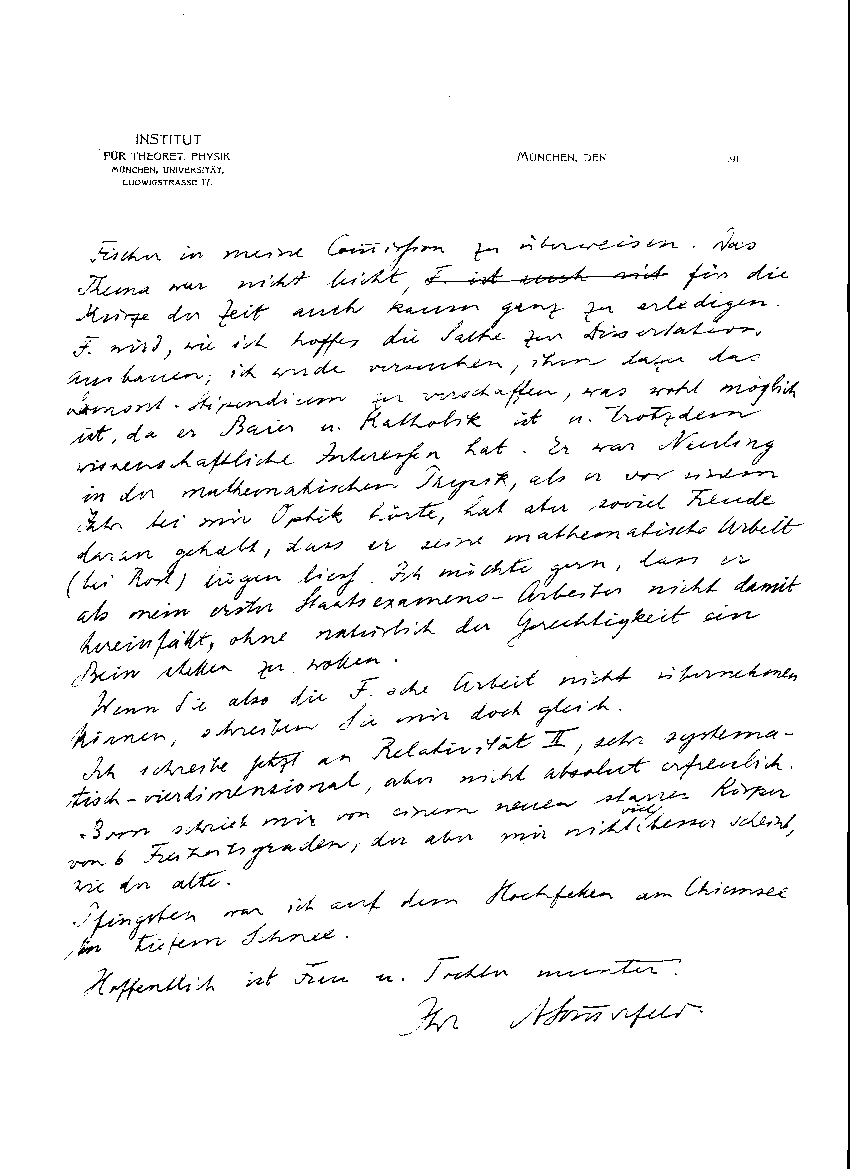 INSTITUT
FÜR THEORET. PHYSIK
MÜNCHEN, UNIVERSITÄT,
LUDWIGSTRASSE 17.
MÜNCHEN, DEN 191
Fischer in meine Com̅ission zu überweisen. Das
Thema war nicht leicht, F. ist auch mit für die
Kürze der Zeit auch kaum ganz zu erledigen.
F. wird, wie ich hoffe, die Sache zur Dissertation
ausbauen; ich würde versuchen, ihm dazu das
Lamont-Stipendium zu verschaffen, was wohl möglich
ist, da er Baier u. Katholik ist u. trotzdem
wissenschaftliche Interessen hat. Er war Neuling
in der mathematischen Physik, als er vor einem
Jahr bei mir Optik hörte, hat aber soviel Freude
daran gehabt, dass er seine mathematische Arbeit
(bei Rost) liegen liess. Ich möchte gern, dass er
als mein erster Staatsexamens-Arbeiter nicht damit
hereinfällt, ohne natürlich der Gerechtigkeit ein
Bein stellen zu wollen.
Wenn Sie also die F.sche Arbeit nicht übernehmen
können, schreiben Sie mir doch gleich.
Ich schreibe jetzt an Relativität II, sehr systema-
tisch-vierdimensional, aber nicht absolut erfreulich.
Born schrieb mir von einem neuen starren Körper
von 6 Freiheitsgraden, der aber mir nicht viel besser scheint,
wie der alte.
Pfingsten war ich auf dem Hochfellen am Chiemsee
in tiefem Schnee.
Hoffentlich ist Frau u. Tochter munter.
Ihr ASom̅erfeld.